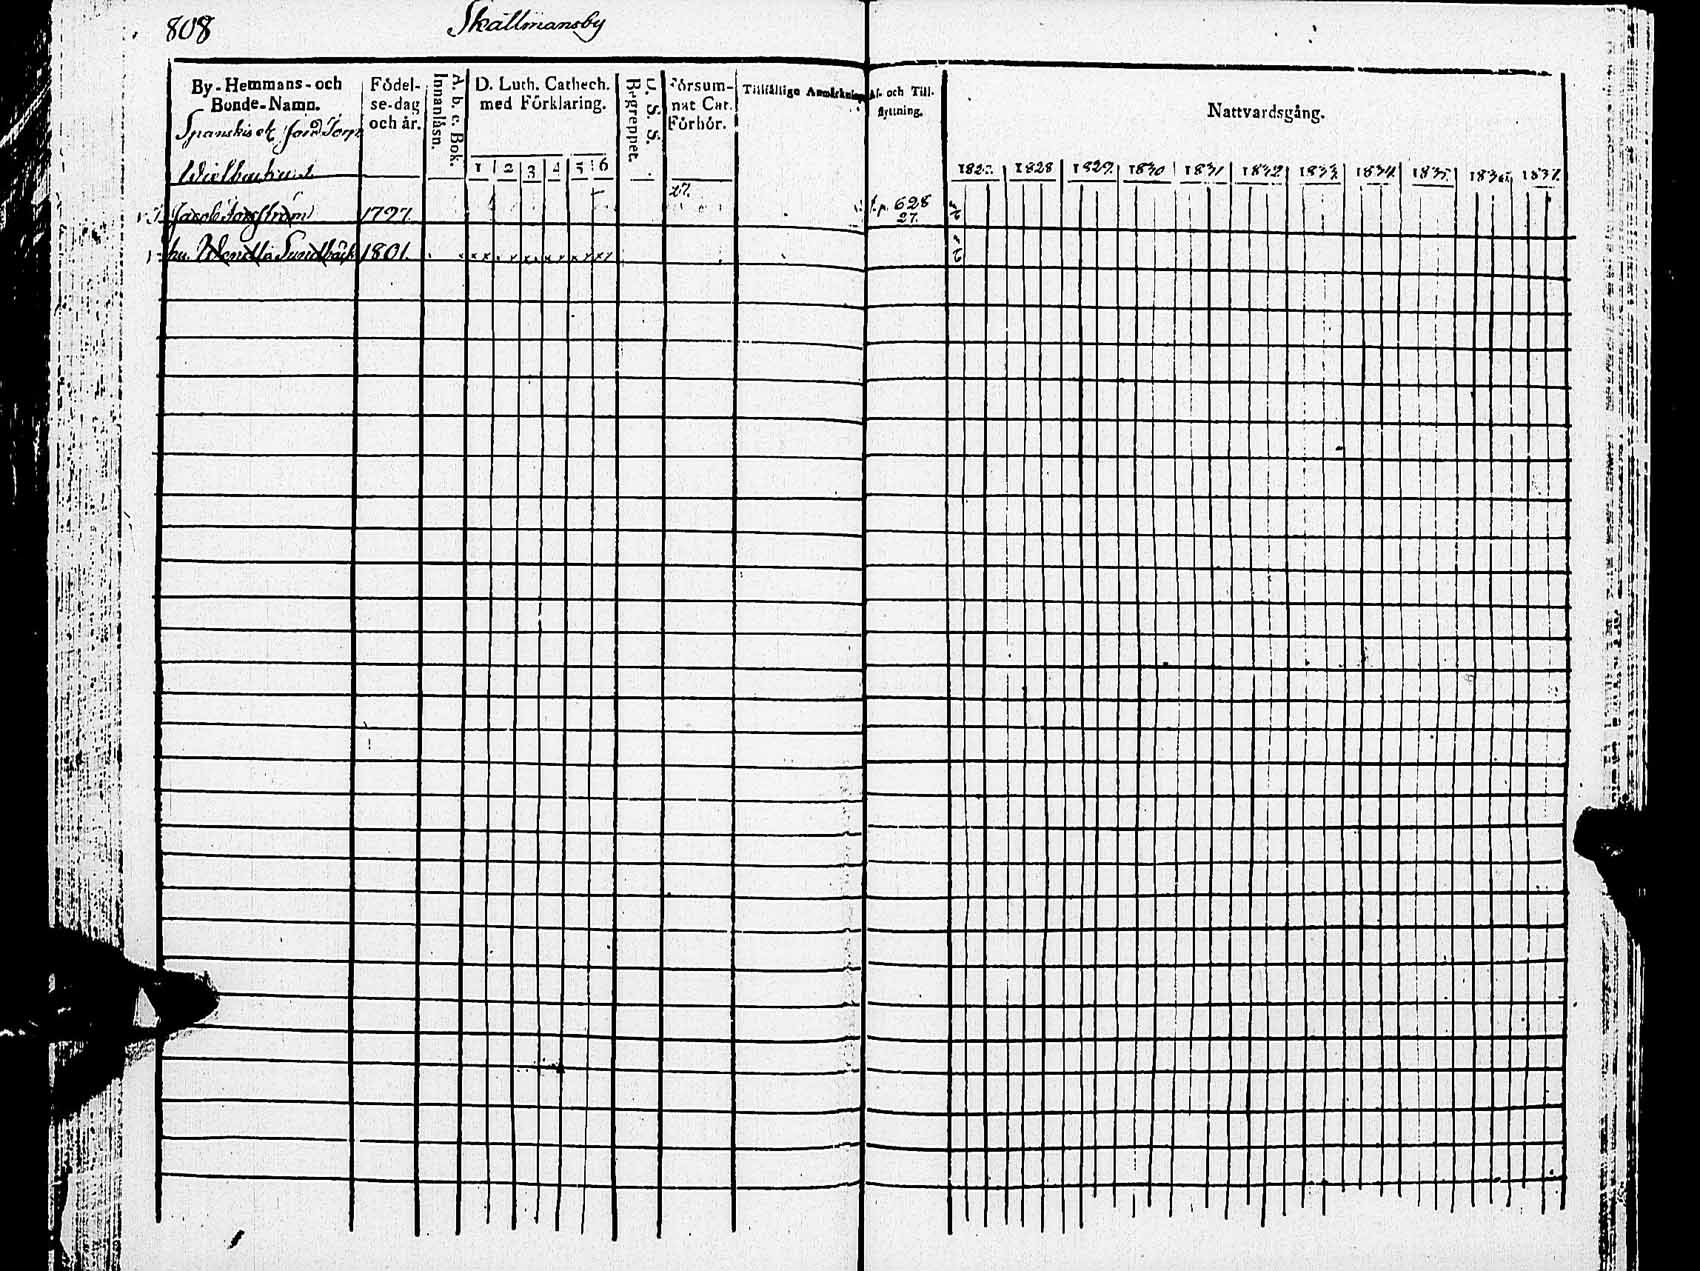 808
Skällmansby
By-Hemmans-och Bonde-Namn.
Födel-se-dag och år.
A. b. c. Bok. Innanläsn.
D. Luth. Cathech. med Förklaring.
U. S. S. Begreppet.
Försum-nat Cat. Förhör.
Tillfällige Anmärkningar
Af- och Till-flyttning.
Nattvardsgång.
1 2 3 4 5 6
1828 1829 1830 1831 1832 1833 1834 1835 1836 1837
Jacob 1797 27. f.p. 628 27.
hu. Wendla Sundbäck 1801.